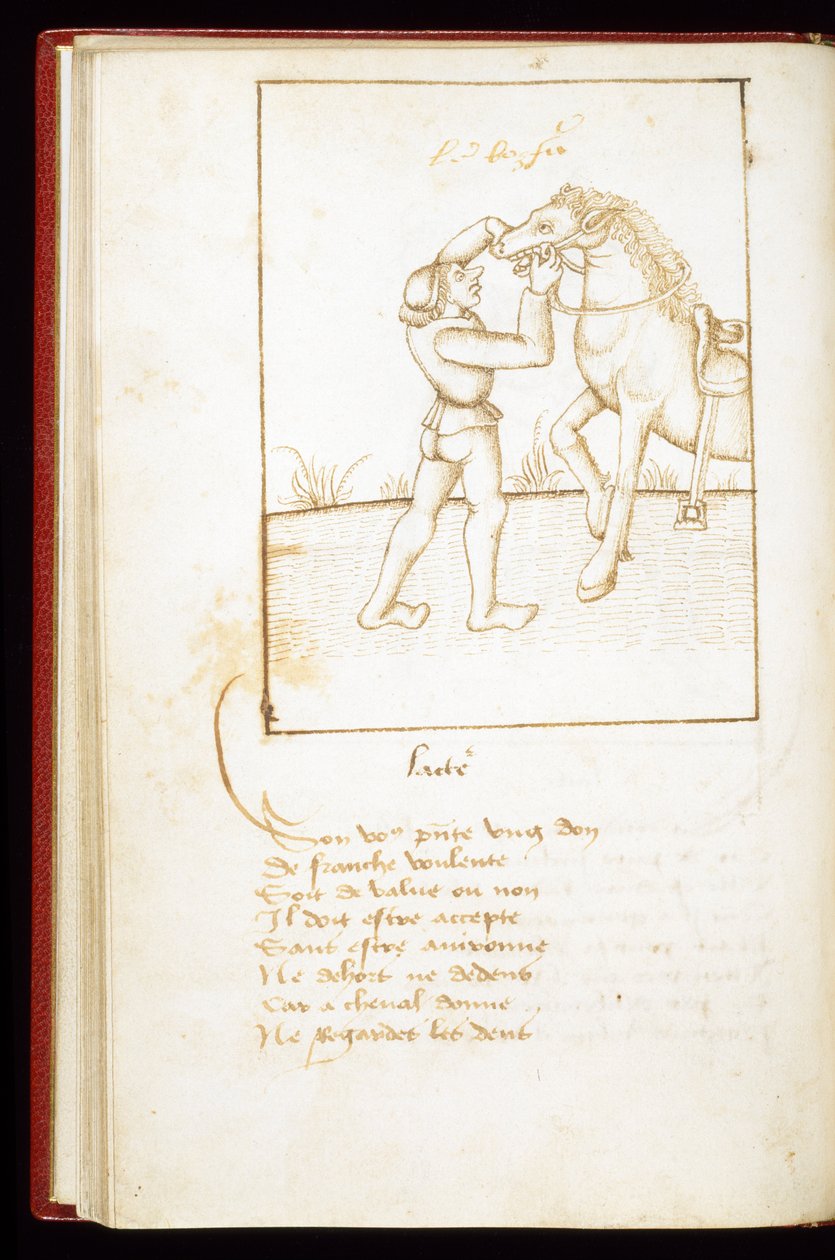 lacteᷣ
Son voꝰ pñte vng don
De franche voulente
Soit de value ou non
Il doit estre accepte
Sans estre auironne
Ne dehors ne dedens
Car a cheual donne
Ne Regardes les dens